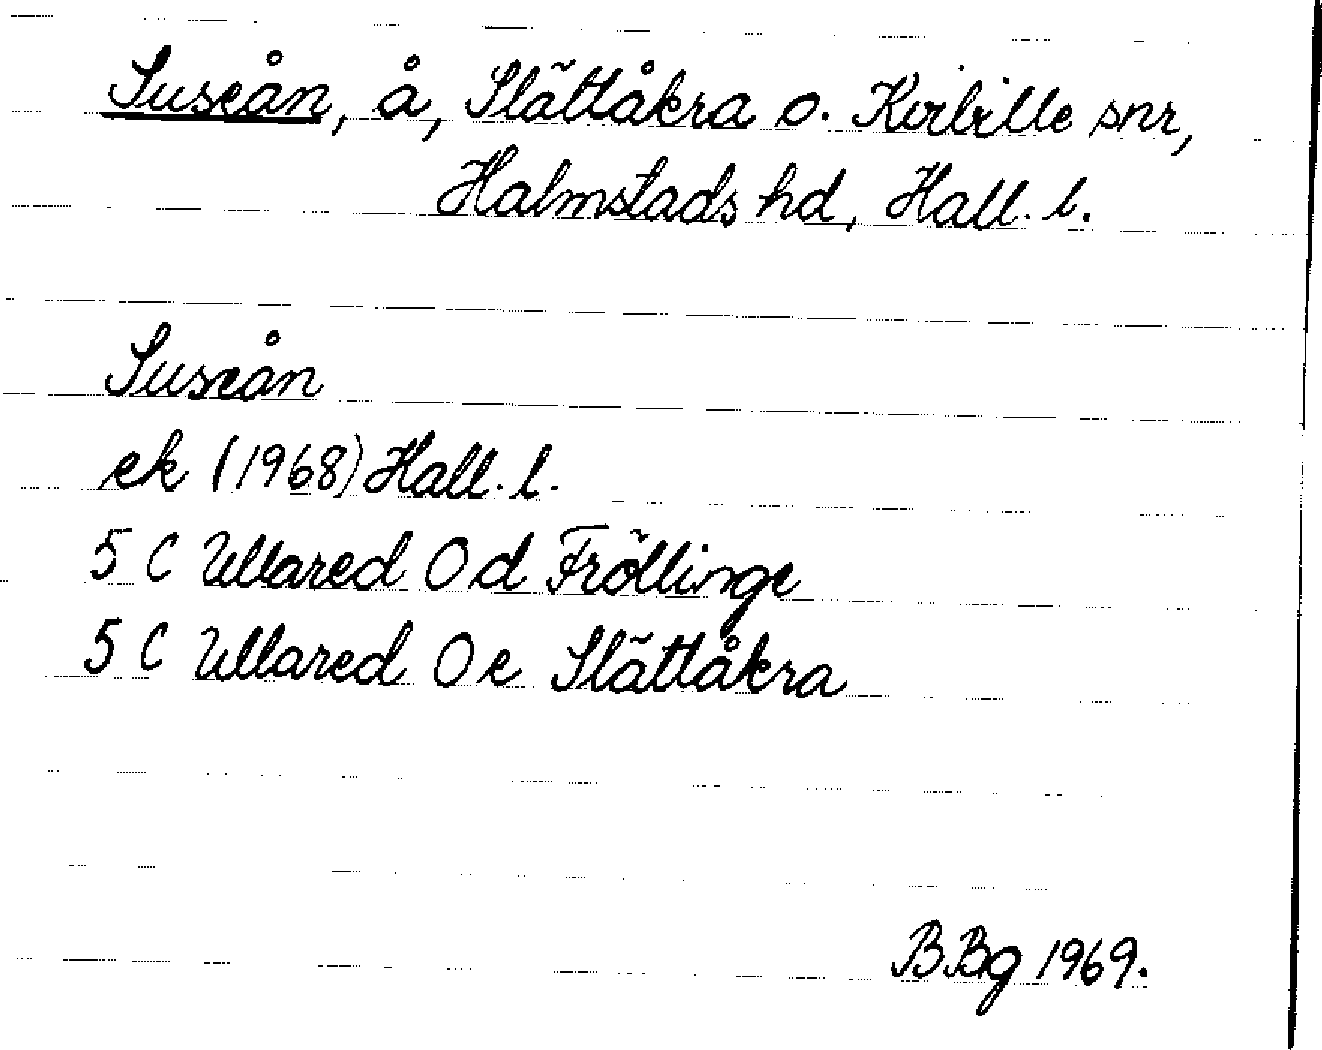 Suseån, å, Slättåkra o. Kvibille snr,
Halmstads hd, Hall. l.
Suseån
ek (1968) Hall. l.
5 C Ullared 0 d Fröllinge
5 C Ullared 0 e Slättåkra
BBg 1969.